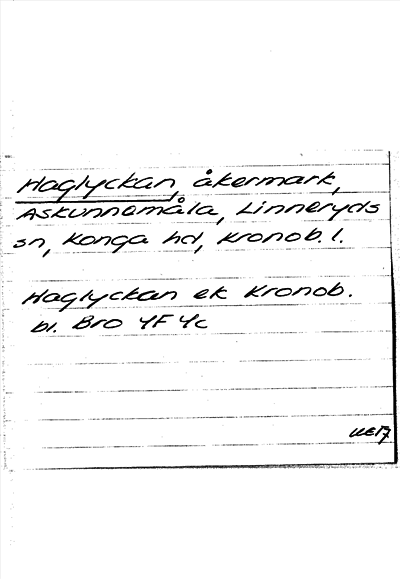 Haglyckan, åkermark,
Askunnamåla, Linneryds
sn, Konga hd, Kronob. l.
Haglyckan ek Kronob.
bl. Bro 4F 4c